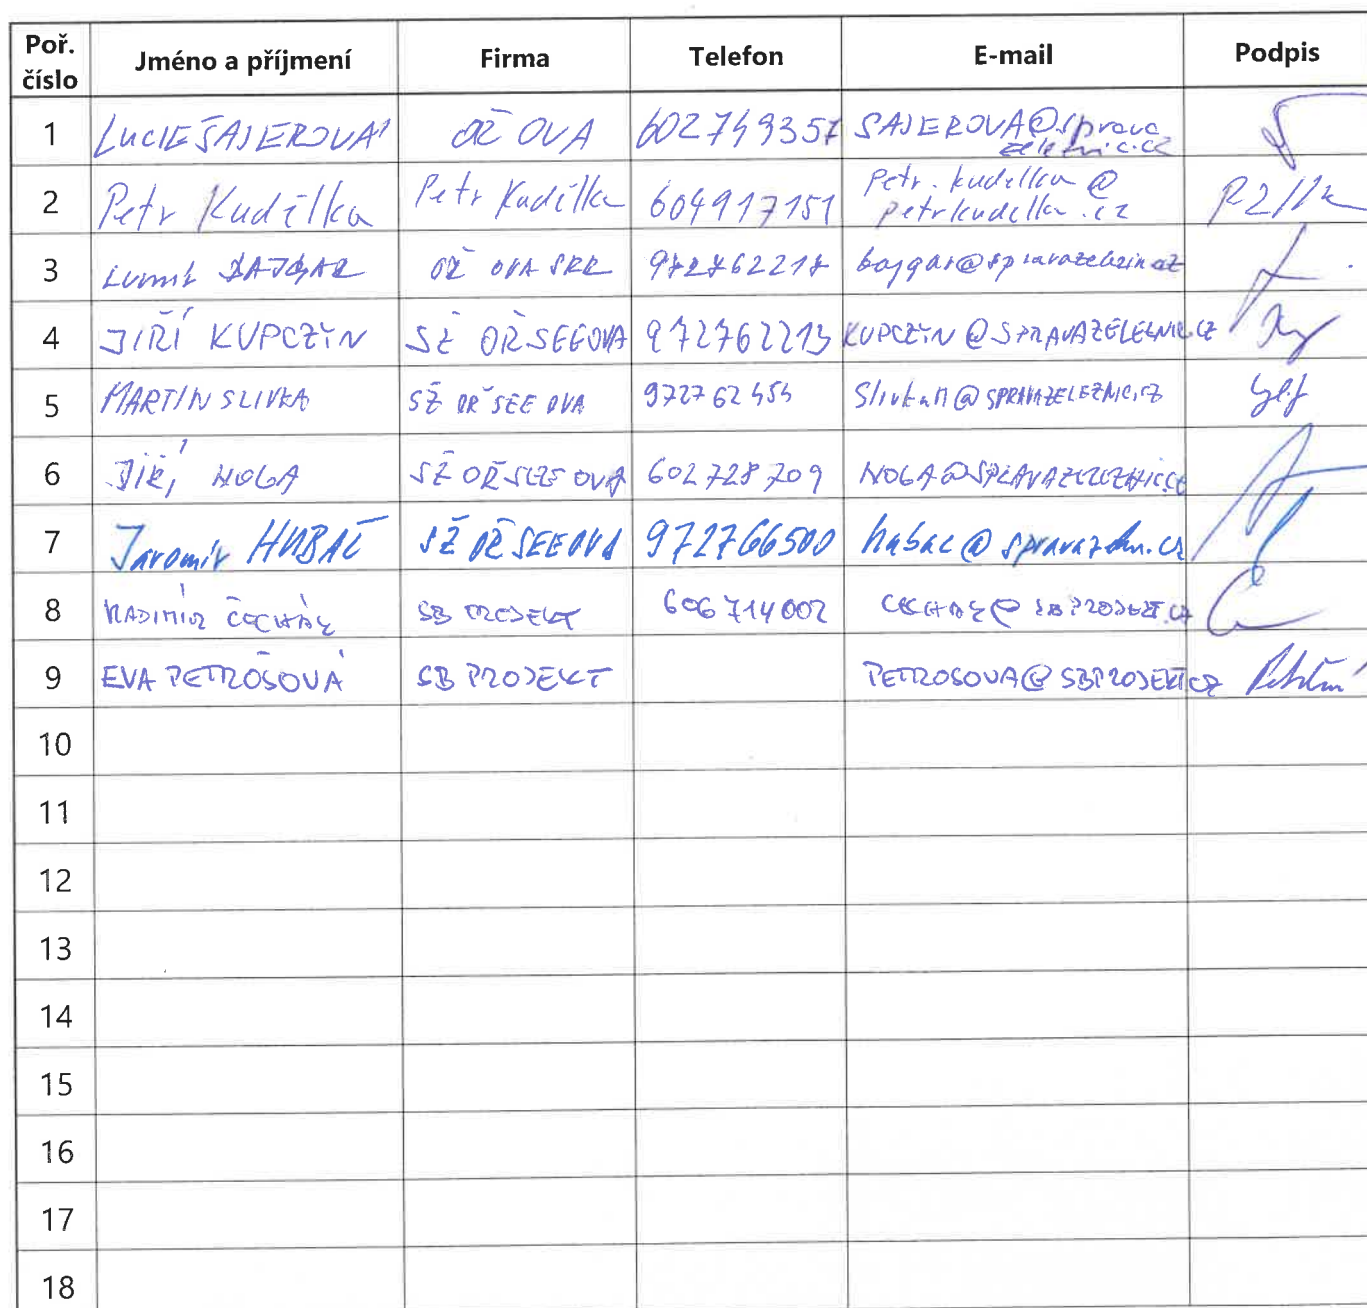 Poř. číslo Jméno a příjmení Firma Telefon E-mail Podpis
1 LUCIE ŠAJEROVÁ OŘ OVA 602749357 SAJEROVA@sprava
zeleznic.cz
2 Petr Kudělka Petr Kudělka 604917151 petr.kudelka@
petrkudelka.cz
3 BAJGAR OŘ OVA 972762217
4 JIŘÍ KUPCZYN SŽ OŘ SEE OVA 972762213 KUPCZYN@SPRAVAZELEZNIC.CZ
5 MARTIN SLIVKA SŽ OŘ SEE OVA 972762454 SlivkaM@SPRAVAZELEZNIC.CZ
6 JIŘÍ NOGA SŽ OŘ SEE OVA 602728709 NOGA@SPRAVAZELEZNIC.CZ
7 Jaromír HUBAČ SŽ OŘ SEE OVA 972766500
8 SB PROJEKT 606714002
9 EVA PETROŠOVÁ SB PROJEKT PETROSOVA@SBPROJEKT.CZ
10
11
12
13
14
15
16
17
18